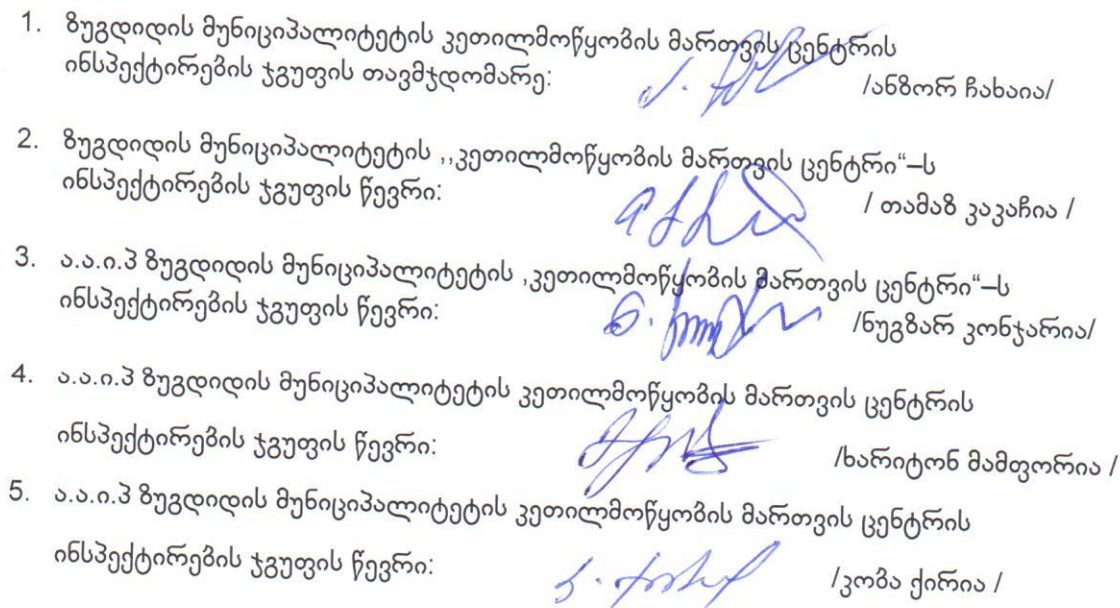 1. ზუგდიდის მუნიციპალიტეტის კეთილმოწყობის მართვის ცენტრის
ინსპექტირების ჯგუფის თავმჯდომარე: /ანზორ ჩახაია/
2. ზუგდიდის მუნიციპალიტეტის ,,კეთილმოწყობის მართვის ცენტრი“–ს
ინსპექტირების ჯგუფის წევრი: / თამაზ კაკაჩია /
3. ა.ა.ი.პ ზუგდიდის მუნიციპალიტეტის ,კეთილმოწყობის მართვის ცენტრი“–ს
ინსპექტირების ჯგუფის წევრი: /ნუგზარ კონჯარია/
4. ა.ა.ი.პ ზუგდიდის მუნიციპალიტეტის კეთილმოწყობის მართვის ცენტრის
ინსპექტირების ჯგუფის წევრი: /ხარიტონ მამფორია /
5. ა.ა.ი.პ ზუგდიდის მუნიციპალიტეტის კეთილმოწყობის მართვის ცენტრის
ინსპექტირების ჯგუფის წევრი: /კობა ქირია /